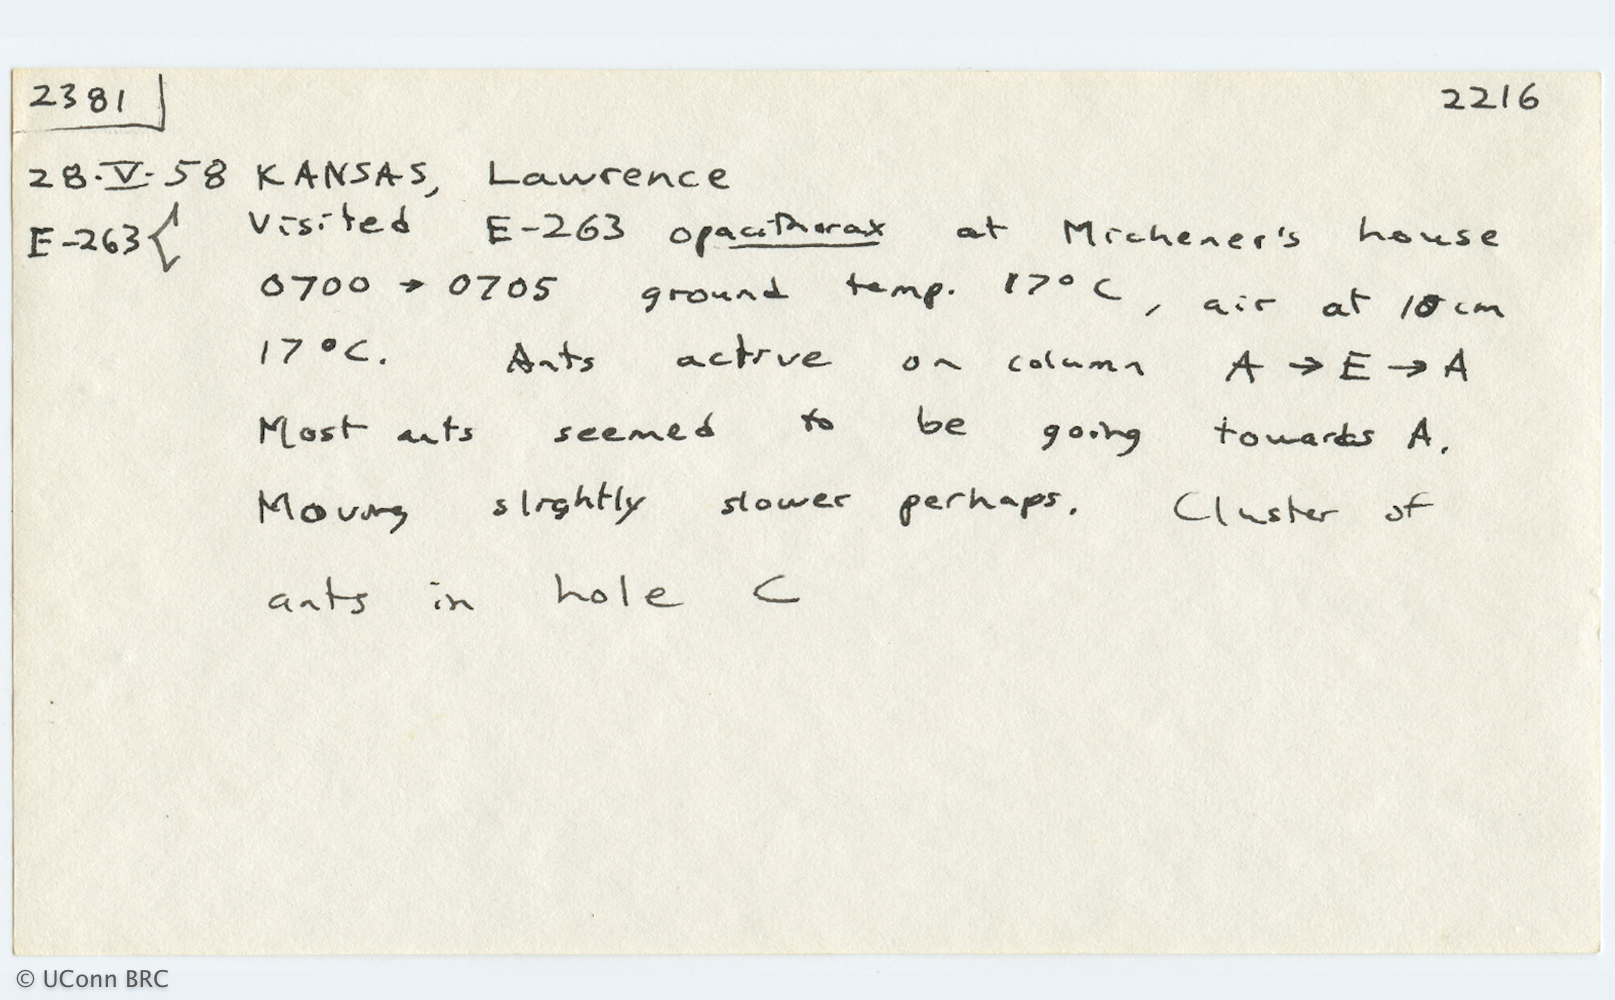 2381 2216
28·V·58 KANSAS, Lawrence
E-263 { Visited E-263 opacithorax at Michener's house
0700 → 0705 ground temp. 17°C, air at 10 cm
17°C. Ants active on column A → E → A
Most ants seemed to be going towards A.
Moving slightly slower perhaps. Cluster of
ants in hole C
© UConn BRC